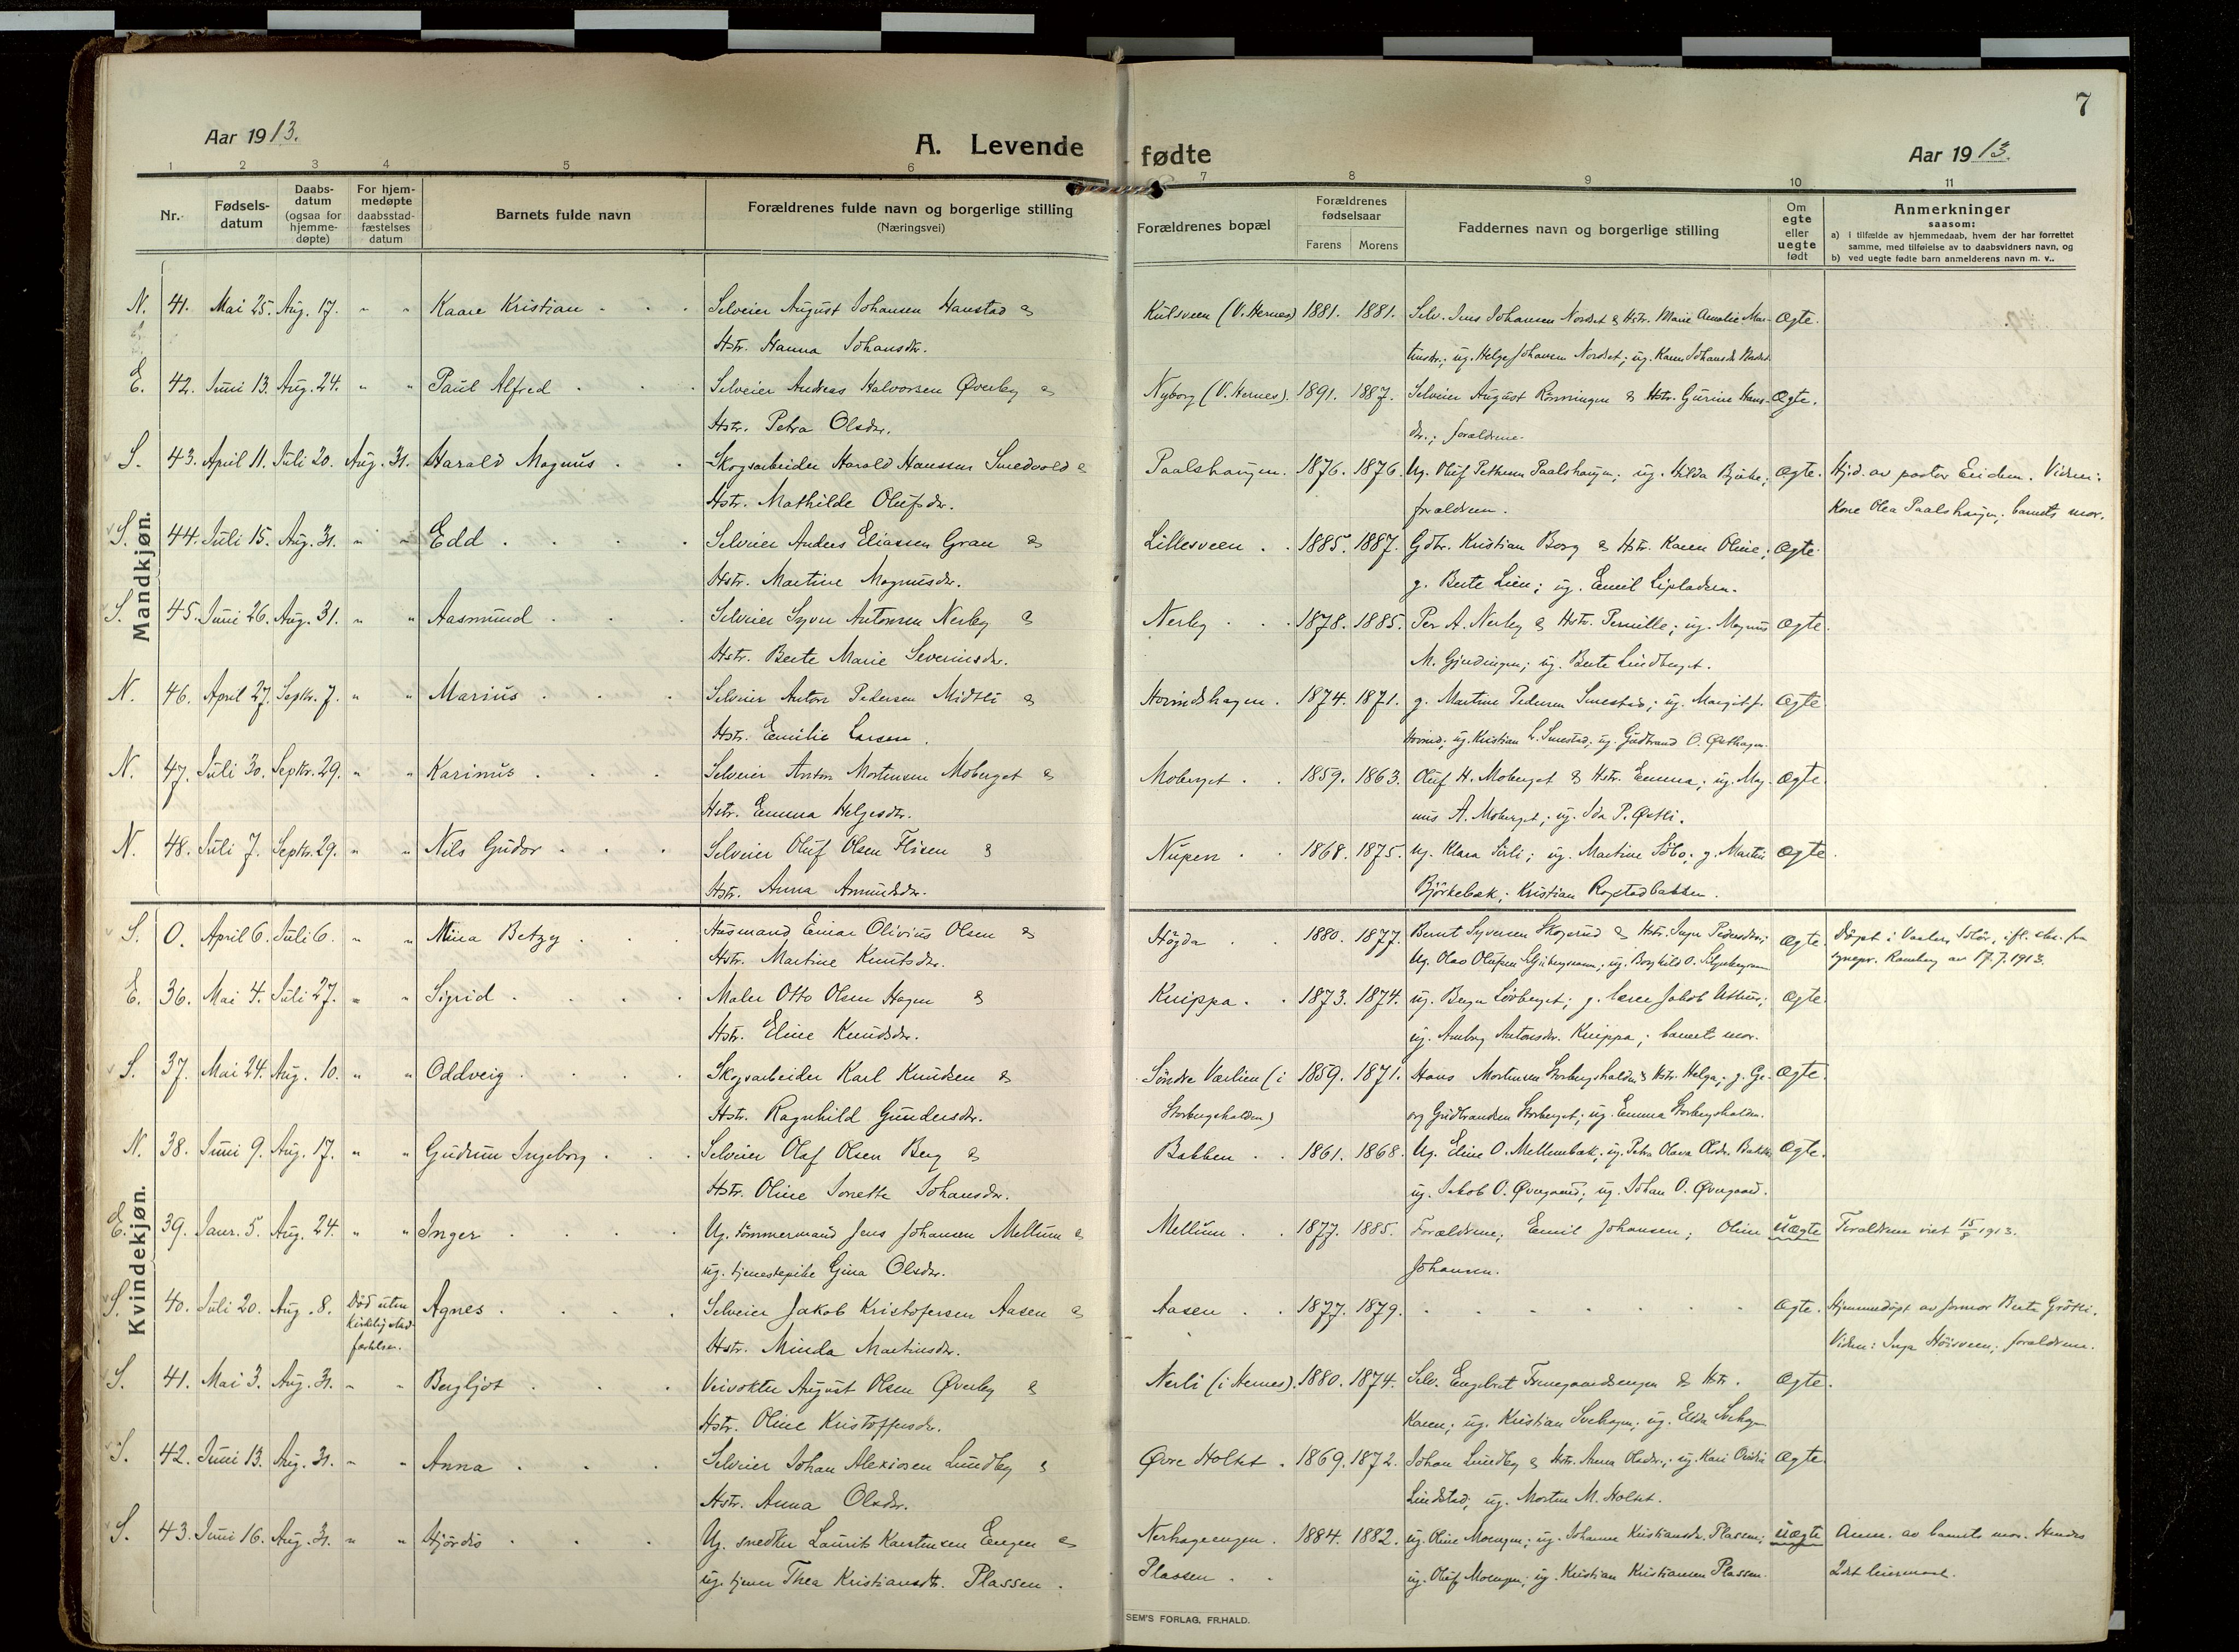 7
Aar 1913.
A. Levende fødte
Aar 1913.
1 2 3 4 5 6 7 8 9 10 11
Nr.
Fødsels-
datum
Daabs-
datum
(ogsaa for
hjemme-
døpte)
For hjem-
medøpte
daabsstad-
fæstelses
datum
Barnets fulde navn
Forældrenes fulde navn og borgerlige stilling
(Næringsvei)
Forældrenes bopæl
Forældrenes
fødselsaar
Farens Morens
Faddernes navn og borgerlige stilling
Om
egte
eller
uegte
født
Anmerkninger
saasom:
a) i tilfælde av hjemmedaab, hvem der har forrettet
samme, med tilføielse av to daabsvidners navn, og
b) ved uegte fødte barn anmelderens navn m. v..
Mandkjøn.
N. 41. Mai 25. Aug. 17. " " Kaare Kristian . . . Selveier August Johansen Hanstad & Kulsveen (V. Hernes) 1881. 1881. Selv. Jens Johansen Nordset & Hstr. Marie Amalie Mar- Ægte.
Hstr. Hanna Johansdtr. tinsdtr.; ug. Helge Johansen Nordset; ug. Karen Johansdtr.
E. 42. Juni 13. Aug. 24. " " Paul Alfred . . . Selveier Andreas Halvorsen Øverby & Nyborg (V. Hernes). 1891. 1887. Selveier August Rønningen & Hstr. Gurine Hans- Ægte.
Hstr. Petra Olsdtr. dtr.; forældrene.
S. 43. April 11. Juli 20. Aug. 31. Harald Magnus . . Skogsarbeider Harald Hanssen Smedvold & Paalshaugen. 1876. 1876. Ug. Oluf Pettersen Paalshaugen; ug. Hilda Bjørke; Ægte. Hjd. av pastor Eidem. Vidner:
Hstr. Mathilde Olufsdtr. forældrene. Kone Olea Paalshaugen; barnets mor.
S. 44. Juli 15. Aug. 31. " " Edd . . . . Selveier Anders Eliassen Gran & Lillesveen . . 1885. 1887. Gdbr. Kristian Borg & Hstr. Karen Oline; Ægte.
Hstr. Martine Magnusdtr. g. Berte Lien; ug. Emil
S. 45. Juni 26. Aug. 31. " " Aasmund . . . Selveier Syver Antonsen Nerby & Nerby . . . 1878. 1885. Per A. Nerby & Hstr. Pernille; ug. Magnus Ægte.
Hstr. Berte Marie Severinsdtr. M. Gjerdingen; ug. Berte Lindberget.
N. 46. April 27. Septbr. 7. " " Marius . . . Selveier Anton Pedersen Midtli & Hovindshagen . 1874. 1871. g. Martine Pedersen Smestad; ug. Margit J. Ægte
Hstr. Emilie Larsen. Hovind; ug. Kristian L. Smestad; ug. Gudbrand O. Østhagen.
N. 47. Juli 30. Septbr. 29. " " Karinus . . . Selveier Anton Mortensen Moberget & Moberget . . 1859. 1863. Oluf H. Moberget & Hstr. Emma; ug. Mag- Ægte.
Hstr. Emma Helgesdtr. nus A. Moberget; ug. Ida P. Østli.
N. 48. Juli 7. Septbr. 29. " " Nils Gudor . . . Selveier Oluf Olsen Flisen & Nupen . . 1868. 1875. Ug. Klara Sörli; ug. Martine Söbo; g. Martin Ægte.
Hstr. Anna Amundsdtr. Björkebæk; Kristian Rogstadbakken.
Kvindekjøn.
S. 0. April 6. Juli 6. " " Mina Betzy . . . Husmand Einar Olivius Olsen & Högda . . 1880. 1877. Bernt Syversen Skogsrud & Hstr. Inger Pedersdtr.; Ægte. Döpt i Vaaler, Solör, ifl. att. fra
Hstr. Martine Knutsdtr. Ug. Olav Olufsen; ug. Borghild O. sognepr. Ramberg av 17.7.1913.
E. 36. Mai 4. Juli 27. " " Sigrid . . . . Maler Otto Olsen Hagen & Knippa . . 1873. 1874. ug. Berger Lövberget; g. lærer Jakob Uthus; Ægte.
Hstr. Eline Knudsdtr. ug. Amborg Antonsdtr. Knippa; barnets mor.
S. 37. Mai 24. Aug. 10. " " Oddveig . . . . Skogsarbeider Karl Knudsen & Söndre Værlien (i 1859. 1871. Hans Mortensen Storbergshalden & Hstr. Helga; g. Ge- Ægte.
Hstr. Ragnhild Gundersdtr. Storbergshalden) org Gudbrandsen Storberget; ug. Emma Storbergshalden.
N. 38. Juni 9. Aug. 17. " " Gudrun Ingeborg . . . Selveier Olaf Olsen Berg & Bakken . . 1861. 1868. Ug. Eline O. Mellembæk; ug. Petra Olava Olsdtr. Bakken Ægte.
Hstr. Oline Jonette Johansdtr. ug. Jakob O. Øvergaard; ug. Johan O. Øvergaard.
E. 39. Janr. 5. Aug. 24. " " Inger . . . . Ug. tömmermand Jens Johansen Mellum & Mellum . . 1877. 1885. Forældrene; Emil Johansen; Oline Uægte Forældrene viet 15/8 1913.
ug. tjenestepike Gina Olsdtr. Johansen.
S. 40. Juli 20. Aug. 8. Död uten Agnes . . . . Selveier Jakob Kristofersen Aasen & Aasen . . 1877. 1879. . - - - - - Ægte. Hjemmedöpt av farmor Berte Gröthi.
kirkelig stad-
fæstelse. Hstr. Minda Martinsdtr. Vidner: Inga Höisveen; forældrene.
S. 41. Mai 3. Aug. 31. " " Bergljot . . . Veivokter August Olsen Øverby & Nerli (i Hernes). 1880. 1874. Selv. Engebret & Hstr. Ægte.
Hstr. Oline Kristoffersdtr. Karen; ug. Kristian Svehagen; ug. Elda Svehagen
S. 42. Juni 13. Aug. 31. " " Anna . . . Selveier Johan Alexiosen Lundby & Øvre Holtet . 1869. 1872. Johan Lundby & Hstr. Anna Olsdtr.; ug. Kari Ovidia Ægte.
Hstr. Anna Olsdtr. Lindstad; ug. Morten M. Holtet.
S. 43. Juni 16. Aug. 31. " " Hjördis . . . Ug. snedker Laurits Karstensen Engen & Nerhageengen . 1884. 1882. ug. Oline Moengen; ug. Johanne Kristiansdtr. Plassen; Uægte Anm. av barnets mor. Hendes
ug. tjener Thea Kristiansdtr. Plassen. Plassen . . ug. Oluf Moengen; ug. Kristian Kristiansen Plassen. 2det leiermaal.
SEM'S FORLAG, FR.HALD.